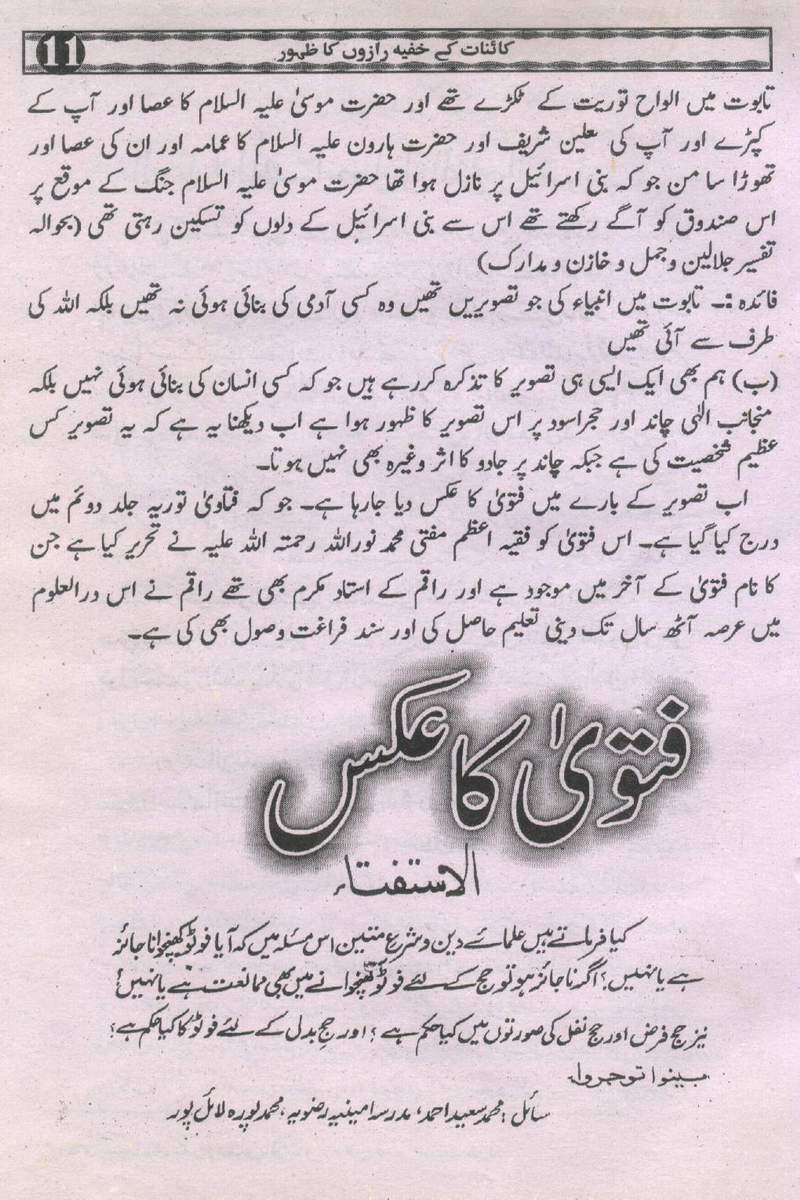 کائنات کے خفیہ رازوں کا ظہور
11
تابوت میں الواح توریت کے ٹکڑے تھے اور حضرت موسیٰ علیہ السلام کا عصا اور آپ کے
کپڑے اور آپ کی نعلین شریف اور حضرت ہارون علیہ السلام کا عمامہ اور ان کی عصا اور
تھوڑا سا من جو کہ بنی اسرائیل پر نازل ہوا تھا حضرت موسیٰ علیہ السلام جنگ کے موقع پر
اس صندوق کو آگے رکھتے تھے اس سے بنی اسرائیل کے دلوں کو تسکین رہتی تھی (بحوالہ
تفسیر جلالین و جمل و خازن و مدارک)
فائدہ :۔ تابوت میں انبیاء کی جو تصویریں تھیں وہ کسی آدمی کی بنائی ہوئی نہ تھیں بلکہ اللہ کی
طرف سے آئی تھیں
(ب) ہم بھی ایک ایسی ہی تصویر کا تذکرہ کررہے ہیں جو کہ کسی انسان کی بنائی ہوئی نہیں بلکہ
منجانب الٰہی چاند اور حجراسود پر اس تصویر کا ظہور ہوا ہے اب دیکھنا یہ ہے کہ یہ تصویر کس
عظیم شخصیت کی ہے جبکہ چاند پر جادو کا اثر وغیرہ بھی نہیں ہوتا۔
اب تصویر کے بارے میں فتویٰ کا عکس دیا جارہا ہے۔ جو کہ فتاویٰ نوریہ جلد دوئم میں
درج کیا گیا ہے۔ اس فتویٰ کو فقیہ اعظم مفتی محمد نوراللہ رحمتہ اللہ علیہ نے تحریر کیا ہے جن
کا نام فتویٰ کے آخر میں موجود ہے اور راقم کے استاد مکرم بھی تھے راقم نے اس درالعلوم
میں عرصہ آٹھ سال تک دینی تعلیم حاصل کی اور سند فراغت وصول بھی کی ہے۔
فتویٰ کا عکس
الاستفتاء
کیا فرماتے ہیں علمائے دین و شرع متین اس مسئلہ میں کہ آیا فوٹو کھنچوانا جائز
ہے یا نہیں؟ اگر ناجائز ہو تو حج کے لئے فوٹو کھنچوانے میں بھی ممانعت ہے یا نہیں؟
نیز حج فرض اور حج نفل کی صورتوں میں کیا حکم ہے؟ اور حج بدل کے لئے فوٹو کا کیا حکم ہے؟
بینوا توجروا۔
سائل: محمد سعید احمد، مدرسہ امینیہ رضویہ، محمد پورہ لائل پور